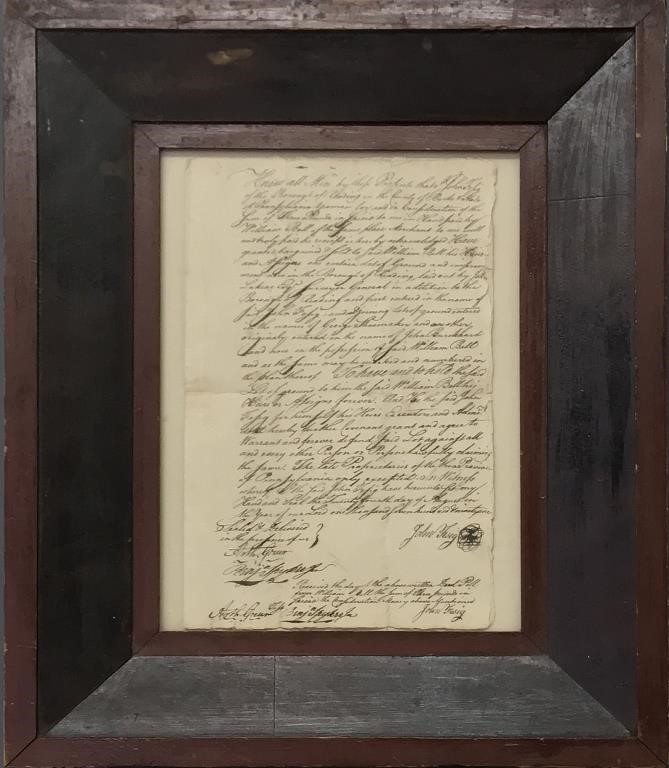 Know all Men by these Presents that I John Feig
of the Borough of Reading in the County of Berks & State
of Pennsylvania for and in Consideration of the
Sum of Three Pounds in Specie to me in Hand paid by
William Bell of the same place Merchant to me well
and truly paid the receipt is hereby acknowledged Have
granted bargained & sold to said William Bell his Heirs
and Assigns one certain Lot of Ground and
situate in the Borough of Reading laid out by John
Lukens Esqr. Surveyor General in addition to the
Borough of Reading and first entered in the name of
said John Feig adjoining Lots of ground entered
in the names of George Shoemaker and another
originally entered in the name of John Burckhard
and now in the possession of said William Bell
and as the same may be marked and numbered in
the plan thereof To have and to hold the said
Lot of ground to him the said William Bell his
Heirs or Assigns forever. And I the said John
Feig for himself his Heirs Executors and Admrs.
doth hereby further Covenant grant and agree to
Warrant and forever defend said Lot against all
and every other Person or Persons lawfully claiming
the same. The late Proprietaries of the
of Pennsylvania only excepted. In Witness
whereof I the said John Feig have hereunto set my
Hand and Seal the Twenty fourth day of August in
the Year of our Lord one thousand seven hundred and ninety one
Sealed & Delivered
in the presence of us
John Feig
Received the day of the above written Deed Poll
from William Bell the sum of three pounds in
Specie the Consideration Money above mentioned
John Feig